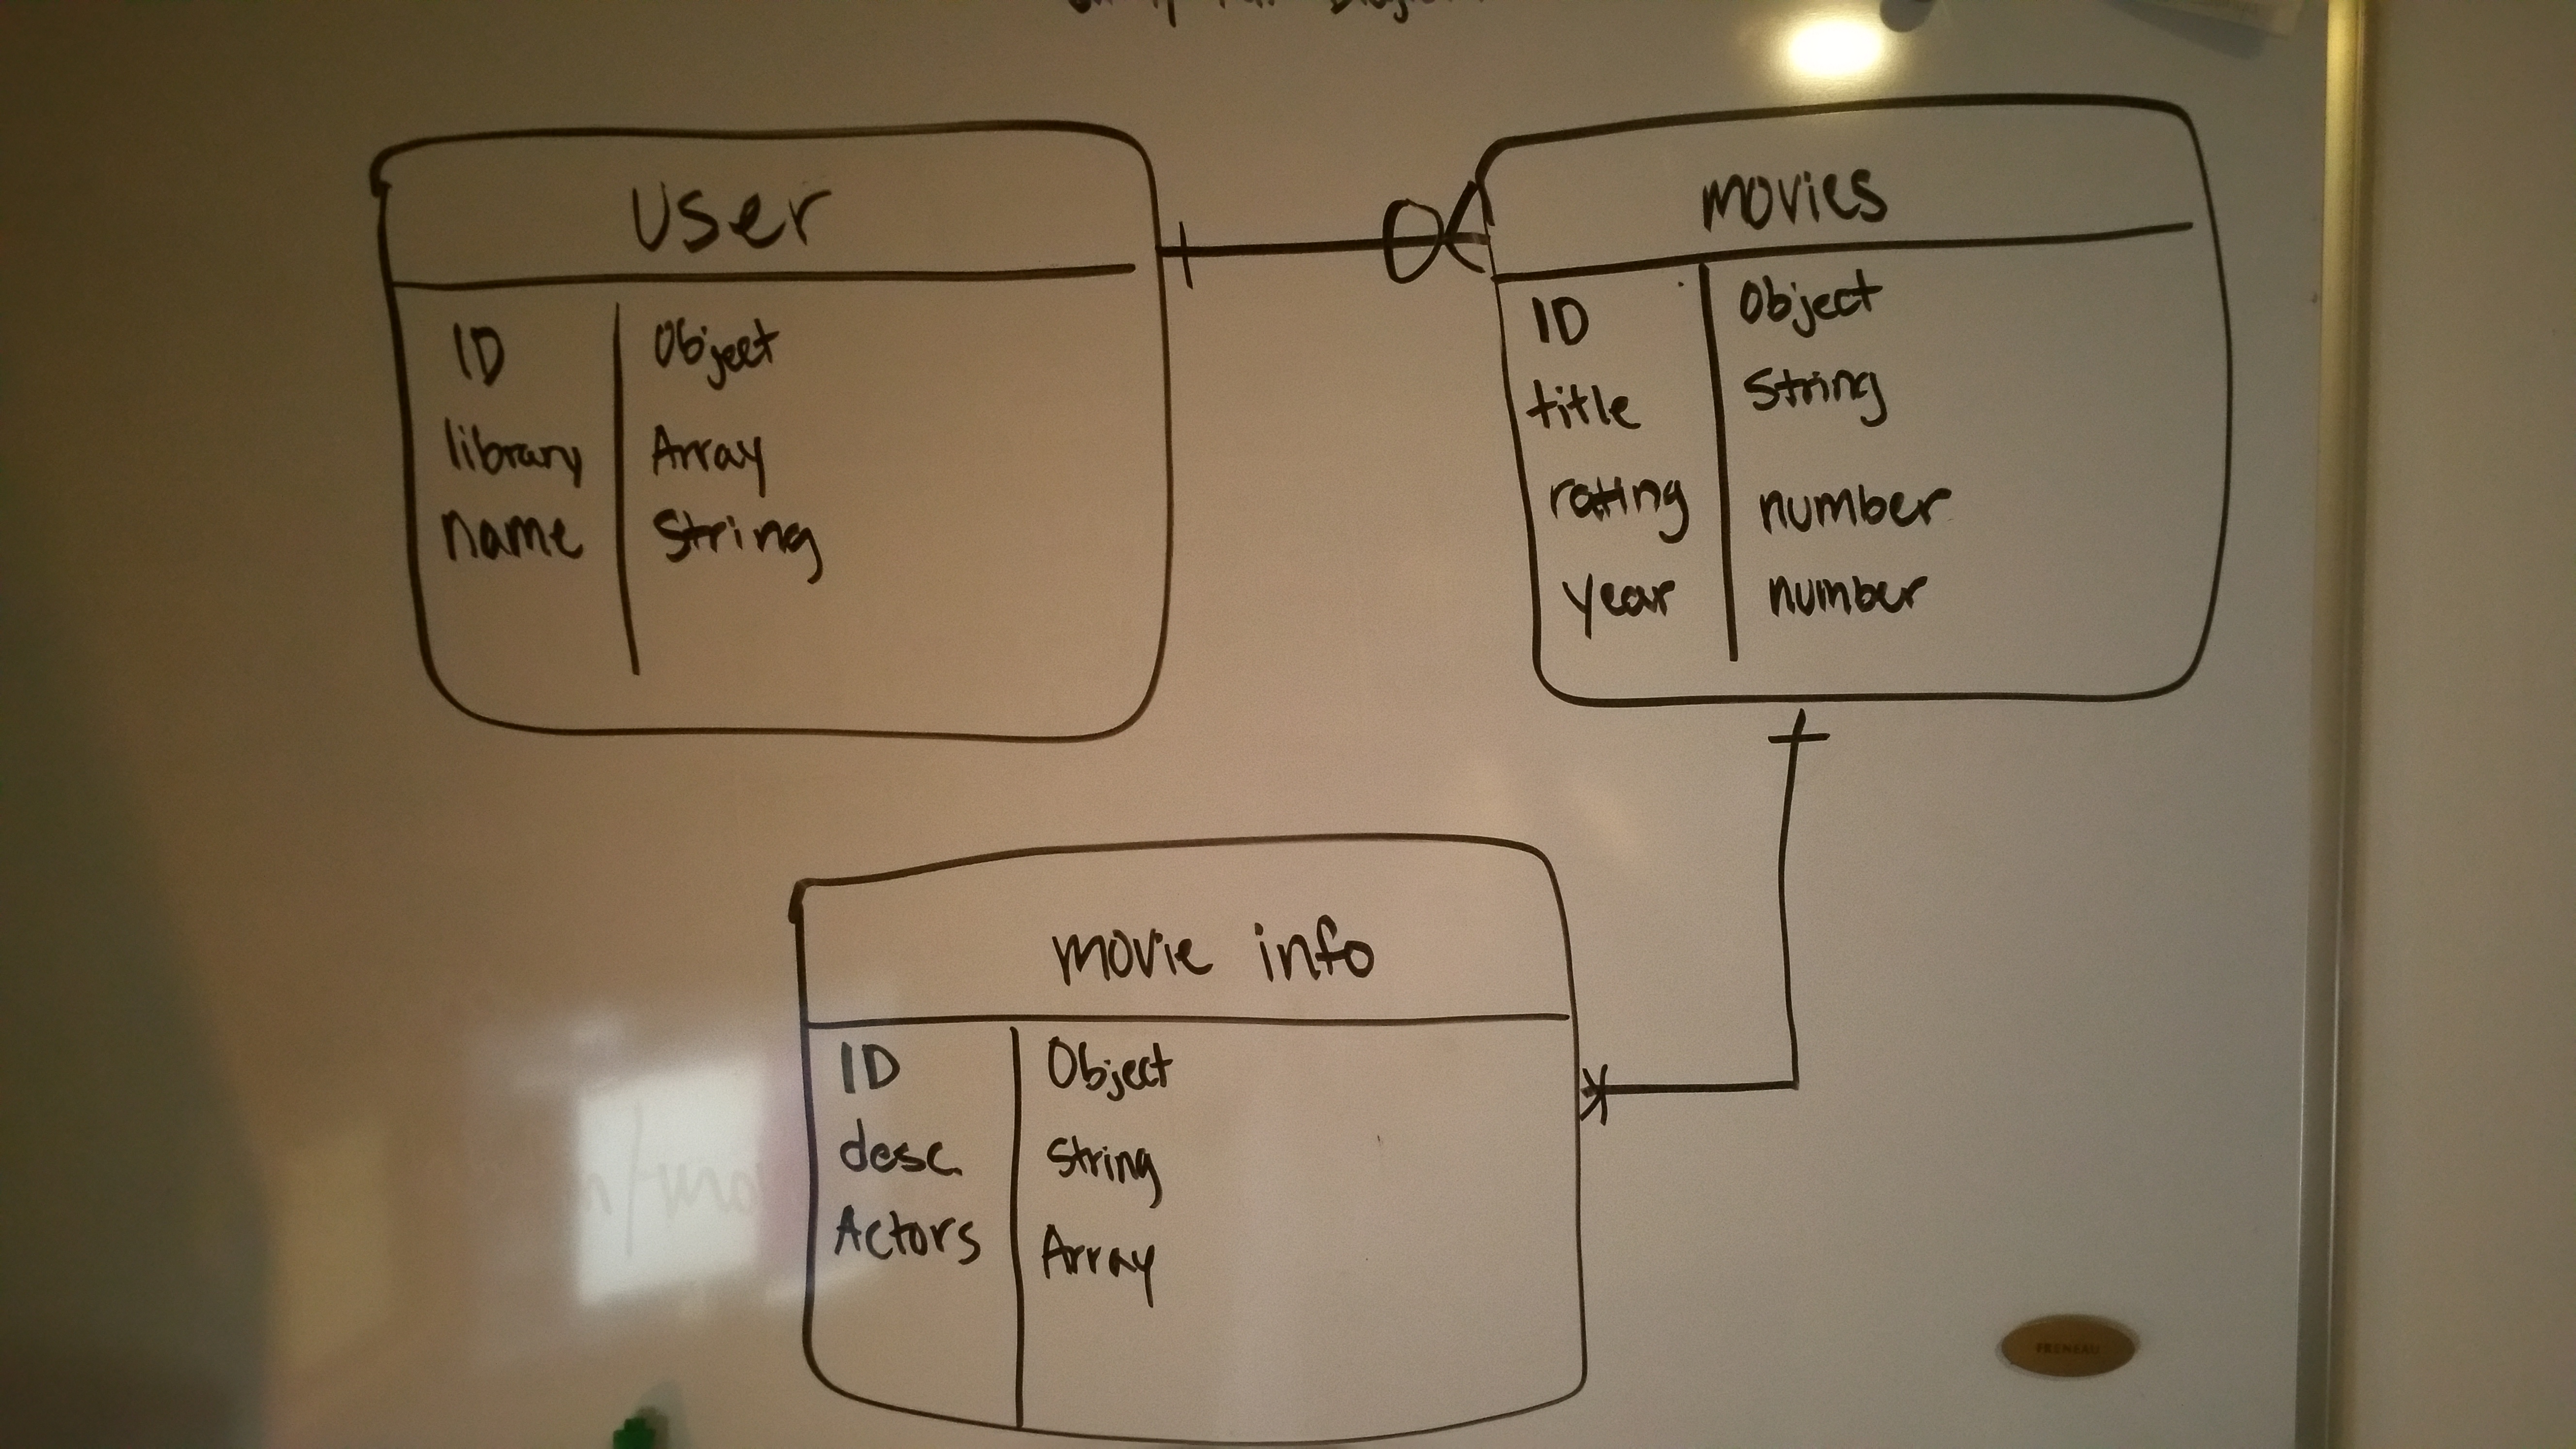 user
ID Object
library Array
name String
movies
ID Object
title String
rating number
year number
movie info
ID Object
desc. String
Actors Array
FRENEAU